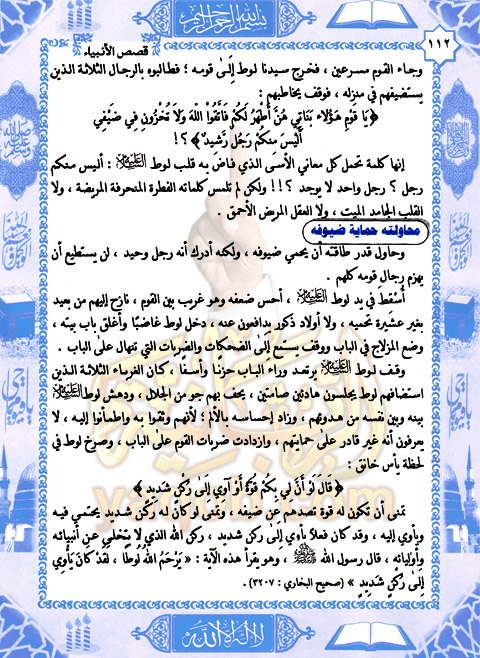 بسم الله الرحمن الرحيم
١١٢
قصص الأنبياء
وجاء القوم مسرعين ، فخرج سيدنا لوط إلى قومه ؛ فطالبوه بالرجال الثلاثة الذين
يستضيفهم في منزله ، فوقف يخاطبهم :
﴿ يَا قَوْمِ هَؤُلَاءِ بَنَاتِي هُنَّ أَطْهَرُ لَكُمْ فَاتَّقُوا اللَّهَ وَلَا تُخْزُونِ فِي ضَيْفِي
أَلَيْسَ مِنكُمْ رَجُلٌ رَّشِيدٌ ﴾ ؟!
إنها كلمة تحمل كل معاني الأسى الذي فاض به قلب لوط عليه السلام : أليس منكم
رجل ؟ رجل واحد لا يوجد ؟!! ولكن لم تلمس كلماته الفطرة المنحرفة المريضة ، ولا
القلب الجامد الميت ، ولا العقل المريض الأحمق .
محاولته حماية ضيوفه
وحاول قدر طاقته أن يحمي ضيوفه ، ولكنه أدرك أنه رجل وحيد ، لن يستطيع أن
يهزم رجال قومه كلهم .
أُسقط في يد لوط عليه السلام ، أحس ضعفه وهو غريب بين القوم ، نازح إليهم من بعيد
بغير عشيرة تحميه ، ولا أولاد ذكور يدافعون عنه ، دخل لوط غاضبًا وأغلق باب بيته ،
وضع المزلاج في الباب ووقف يستمع إلى الضحكات والضربات التي تنهال على الباب .
وقف لوط عليه السلام يرتعد وراء الباب حزنًا وأسفًا ، كان الغرباء الثلاثة الذين
استضافهم لوط يجلسون هادئين صامتين ، يحف بهم جو من الجلال ، ودهش لوط عليه السلام
بينه وبين نفسه من هدوئهم ، وزاد إحساسه بالألم ؛ لأنهم وثقوا به واطمأنوا إليه ، لا
يعرفون أنه غير قادر على حمايتهم ، وازدادت ضربات القوم على الباب ، وصرخ لوط في
لحظة يأس خانق :
﴿ قَالَ لَوْ أَنَّ لِي بِكُمْ قُوَّةً أَوْ آوِي إِلَى رُكْنٍ شَدِيدٍ ﴾
تمنى أن تكون له قوة تصدهم عن ضيفه ، وتمنى لو كان له ركن شديد يحتمي فيه
ويأوي إليه ، وقد كان فعلاً يأوي إلى ركن شديد ، ركن الله الذي لا يتخلى عن أنبيائه
وأوليائه ، قال رسول الله ﷺ ، وهو يقرأ هذه الآية : « يَرْحَمُ اللَّهُ لُوطًا ، لَقَدْ كَانَ يَأْوِي
إِلَى رُكْنٍ شَدِيدٍ » (صحيح البخاري : ٣٢٠٧) .
لا إله إلا الله